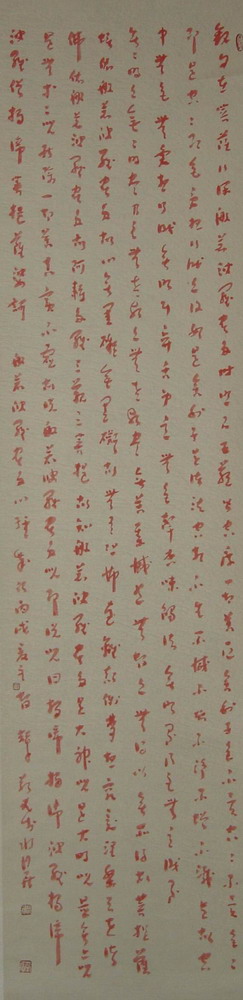 觀自在菩薩行深般若波羅蜜多時照見五蘊皆空度一切苦厄舍利子色不異空空不異色色
即是空空即是色受想行識亦復如是舍利子是諸法空相不生不滅不垢不淨不增不減是故空
中無色無受想行識無眼耳鼻舌身意無色聲香味觸法無眼界乃至無意識界
無無明亦無無明盡乃至無老死亦無老死盡無苦集滅道無智亦無得以無所得故菩提薩
埵依般若波羅蜜多故心無罣礙無罣礙故無有恐怖遠離顛倒夢想究竟涅槃三世諸
佛依般若波羅蜜多故得阿耨多羅三藐三菩提故知般若波羅蜜多是大神咒是大明咒是無上咒
是無等等咒能除一切苦真實不虛故說般若波羅蜜多咒即說咒曰揭諦揭諦波羅揭諦
波羅僧揭諦菩提薩婆訶 般若波羅蜜多心經 歲次丙戌夏